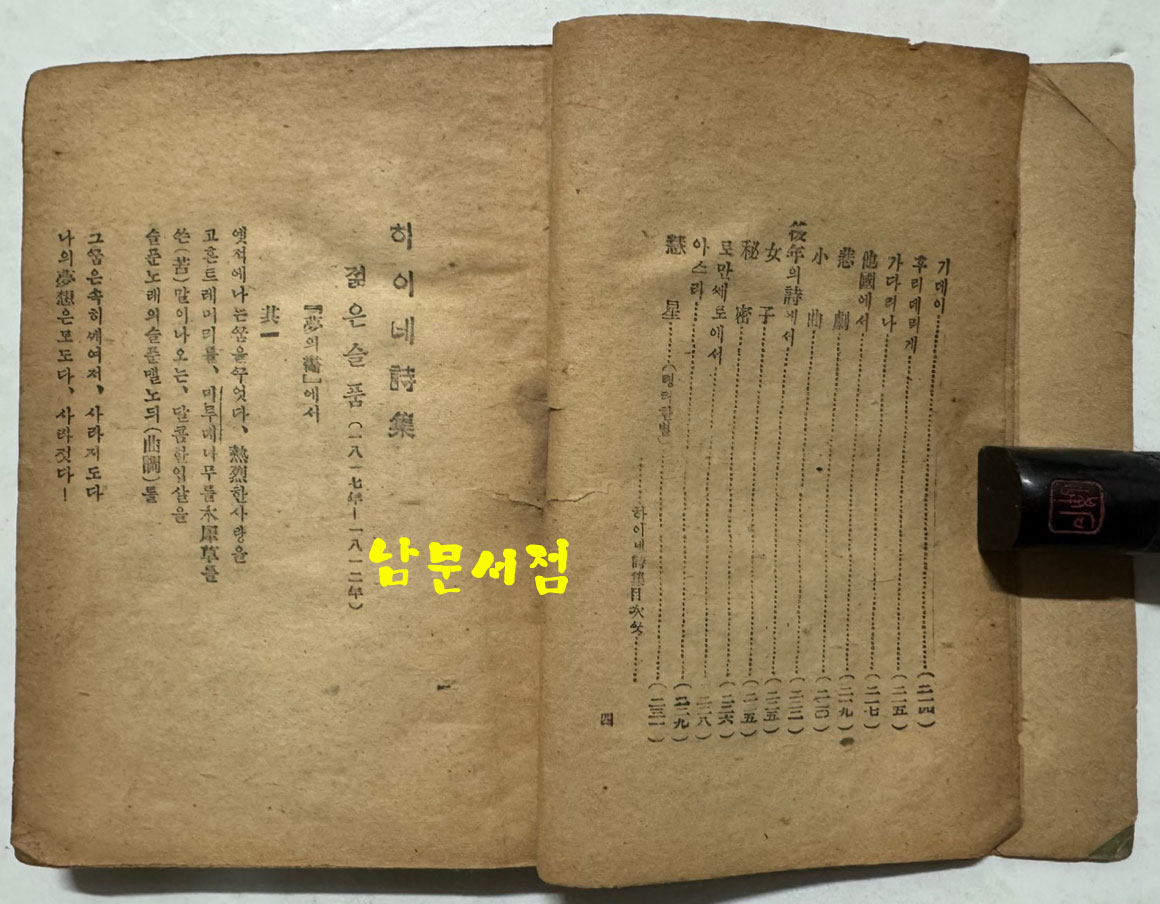 기데이 (二一四)
후리데리케 (二一五)
가다리나 (二一七)
他國에서 (二一九)
悲劇 (二二〇)
小曲
後年의詩에서
女子 (二二五)
秘密
로만세로에서 (二二六)
아스라 (二二八)
星
하이네詩集目次
四
히이네詩集
젊은슬품 (一八一七年―一八二一年)
『夢의 에서
其一
옛적에나는꿈을꾸엇다、熱烈한사랑을
고흔트레머리를、미루데나무를木犀草를
쓴(苦)말이나오는、달콤한입살을
슬푼노래의슬푼멜노듸(曲調)를
그꿈은속히깨여저、사라지도다
나의夢想은모도다、사라젓다!
一
남문서점